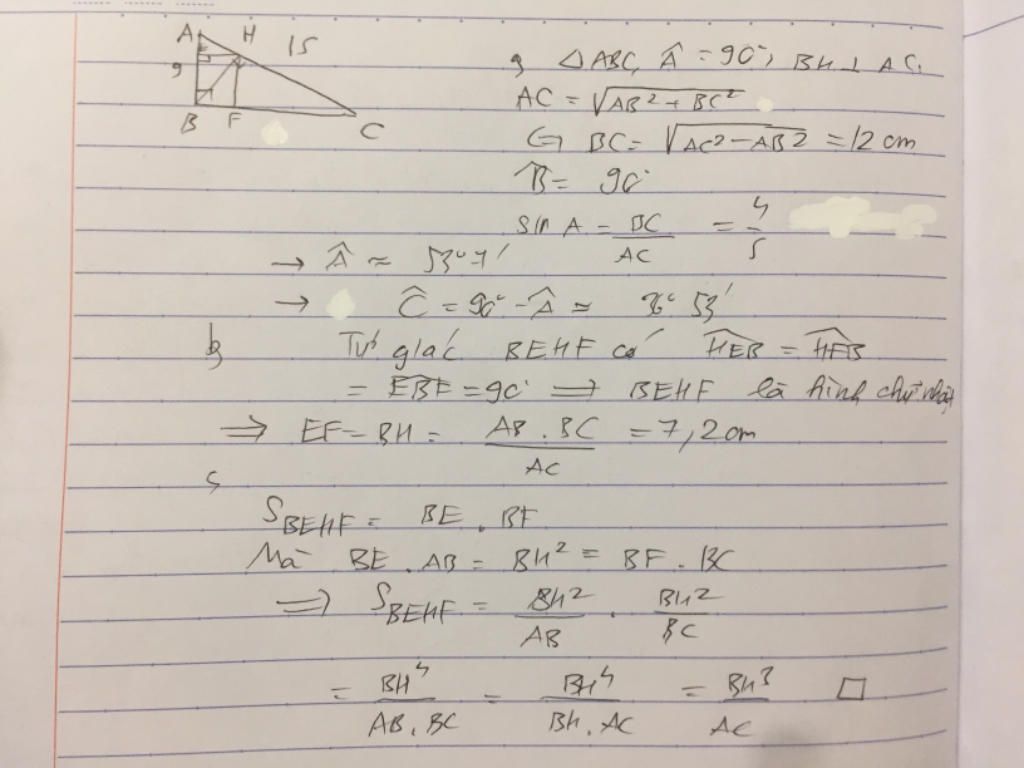 A H 15
9
B F C
a, △ABC, Â = 90°, BH ⊥ AC,
AC = √(AB² + BC²)
↔ BC = √(AC² - AB²) = 12 cm
B̂ = 90°
sin A = BC/AC = 4/5
→ Â ≈ 53°7'
→ Ĉ = 90° - Â ≈ 36°53'
b, Tứ giác BEHF có HEB = HFB
= EBF = 90° ⟹ BEHF là hình chữ nhật
⟹ EF = BH = AB . BC/AC = 7,2 cm
c,
S_BEHF = BE . BF
Mà BE . AB = BH² = BF . BC
⟹ S_BEHF = BH²/AB . BH²/BC
= BH⁴/AB.BC = BH⁴/BH.AC = BH³/AC □